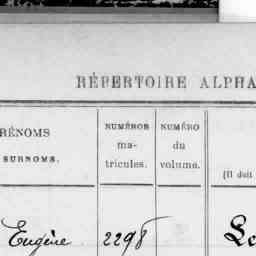 RÉPERTOIRE ALPHA
RÉNOMS
SURNOMS.
NUMÉROS
ma-
tricules.
NUMÉRO
du
volume.
(Il doit
Eugène 2298 Le